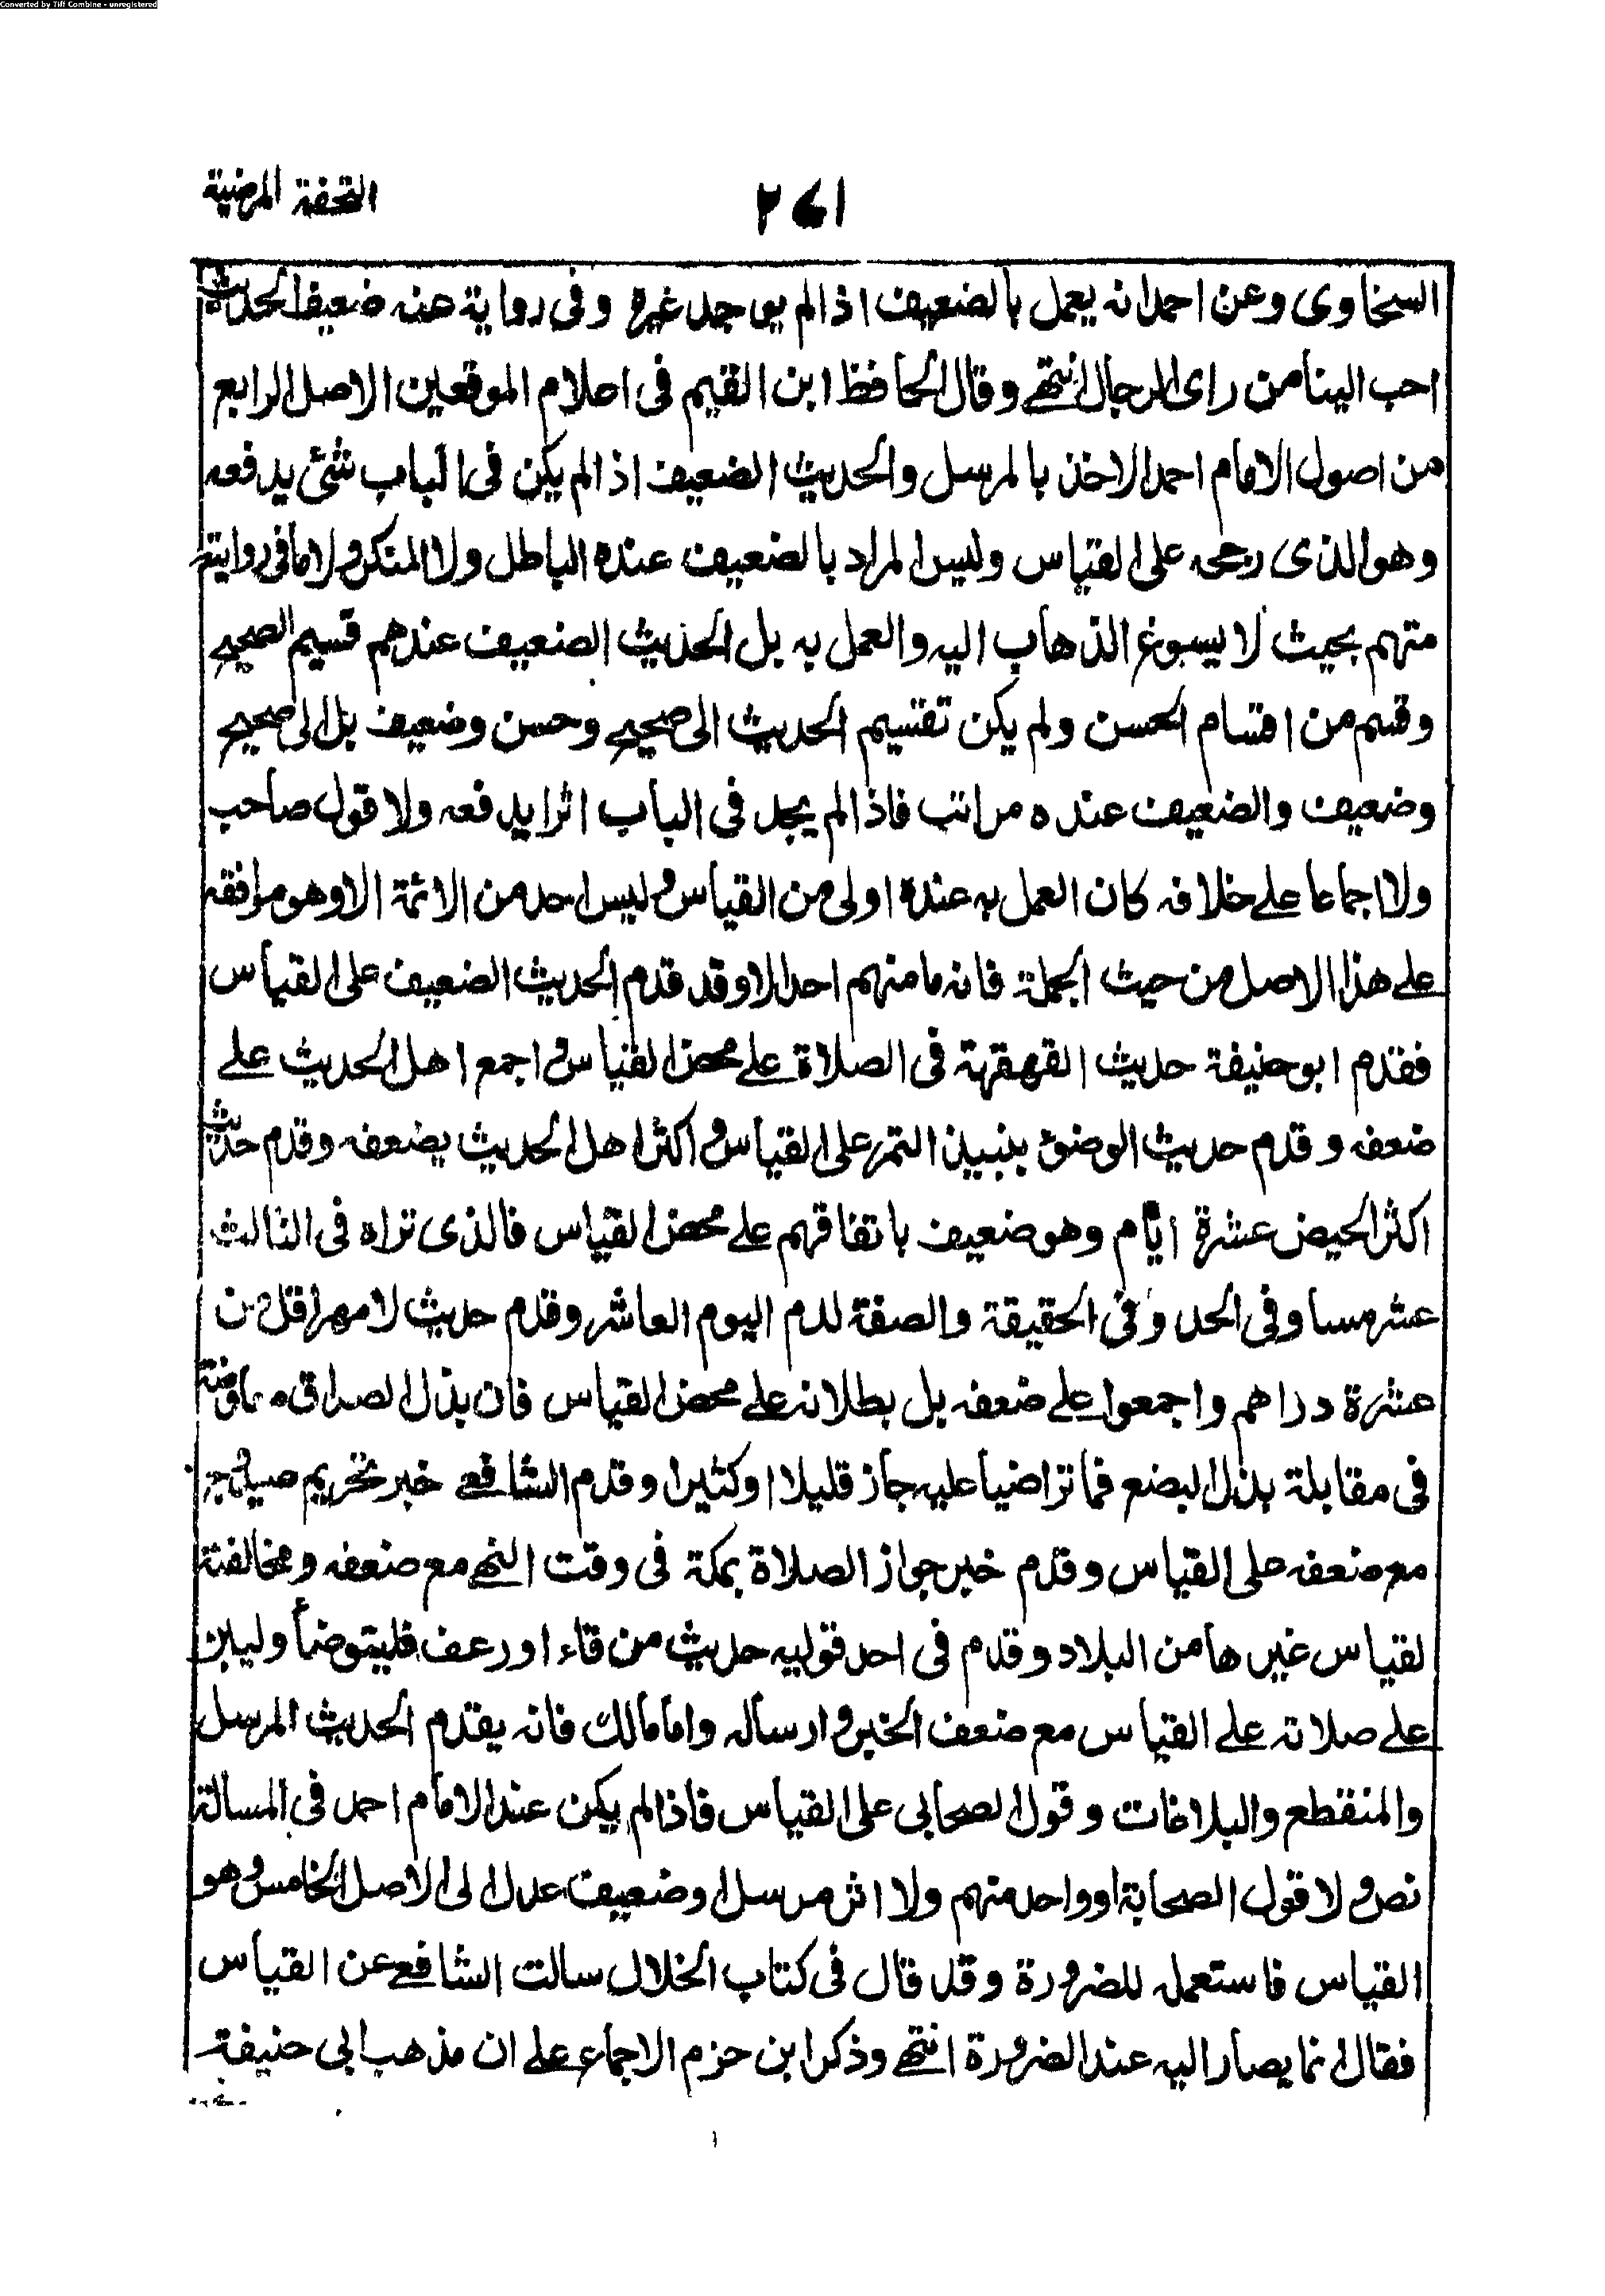 Converted by Tiff Combine - unregistered
التحفة المرضية
٢٧١
السخاوى وعن احمد انه يعمل بالضعيف اذا لم يوجد غيره وفى رواية عنه ضعيف الحديث
احب الينا من راى الرجال انتهے وقال الحافظ ابن القيم فى اعلام الموقعين الاصل الرابع
من اصول الامام احمد الاخذ بالمرسل والحديث الضعيف اذا لم يكن فى الباب شئ يدفعه
وهو الذى رجحه على القياس وليس المراد بالضعيف عنده الباطل ولا المنكر ولا ما فى روايته
متهم بحيث لا يسوغ الذهاب اليه والعمل به بل الحديث الضعيف عندهم قسيم الصحيح
وقسم من اقسام الحسن ولم يكن تقسيم الحديث الى صحيح وحسن وضعيف بل الى صحيح
وضعيف والضعيف عنده مراتب فاذا لم يجد فى الباب اثرا يدفعه ولا قول صاحب
ولا اجماعا علے خلافه كان العمل به عنده اولى من القياس وليس احد من الائمة الا وهو موافقه
علے هذا الاصل من حيث الجملة فانه ما منهم احد الا وقد قدم الحديث الضعيف على القياس
فقدم ابو حنيفة حديث القهقهة فى الصلاة علے محض القياس واجمع اهل الحديث علے
ضعفه وقدم حديث الوضوء بنبيذ التمر على القياس واكثر اهل الحديث يضعفه وقدم حديث
اكثر الحيض عشرة ايام وهو ضعيف باتفاقهم علے محض القياس فالذى تراه فى الثالث
عشر مساو فى الحد وفى الحقيقة والصفة لدم اليوم العاشر وقدم حديث لا مهر اقل من
عشرة دراهم واجمعوا علے ضعفه بل بطلانه علے محض القياس فان بذل الصداق معاوضة
فى مقابلة بذل البضع فما تراضيا عليه جاز قليلا او كثيرا وقدم الشافعے خبر تحريم صيد وج
مع ضعفه على القياس وقدم خبر جواز الصلاة بمكة فى وقت النهے مع ضعفه ومخالفته
لقياس غيرها من البلاد وقدم فى احد قوليه حديث من قاء او رعف فليتوضأ وليبن
علے صلاته علے القياس مع ضعف الخبر وارساله واما مالك فانه يقدم الحديث المرسل
والمنقطع والبلاغات وقول الصحابى على القياس فاذا لم يكن عند الامام احمد فى المسالة
نص ولا قول الصحابة او واحد منهم ولا اثر مرسل او ضعيف عدل الى الاصل الخامس وهو
القياس فاستعمله للضرورة وقد قال فى كتاب الخلال سالت الشافعے عن القياس
فقال انما يصار اليه عند الضرورة انتهے وذكر ابن حزم الاجماع علے ان مذهب ابى حنيفة